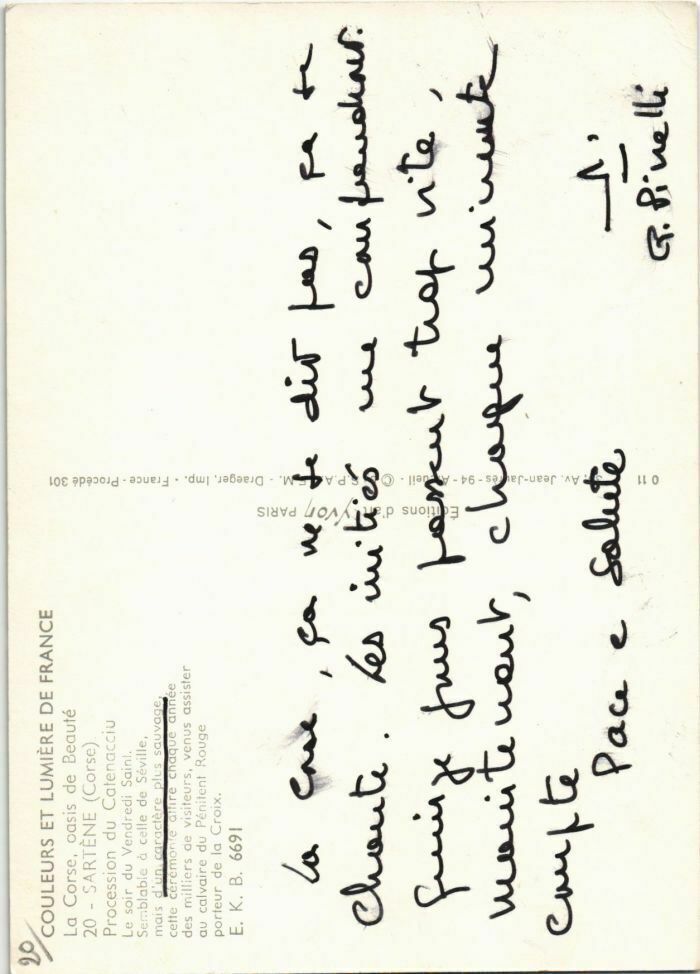 20/
COULEURS ET LUMIÈRE DE FRANCE
La Corse, oasis de Beauté
20 - SARTÈNE (Corse)
Procession du Catenacciu
Le soir du Vendredi Saint.
Semblable à celle de Séville,
mais d'un caractère plus sauvage,
cette cérémonie attire chaque année
des milliers de visiteurs, venus assister
au calvaire du Pénitent Rouge
porteur de la Croix.
E. K. B. 6691
Éditions d'art Yvon PARIS
Av. Jean-Jaurès - 94 - Arcueil - © S.P.A.D.E.M. - Draeger, Imp. - France - Procédé 301
0 11
La Corse, ça ne se dit pas, ça se
chante. Les initiés me comprendront.
jours passent trop vite,
maintenant, chaque minute
compte
Pace e Salute
G. Pinelli